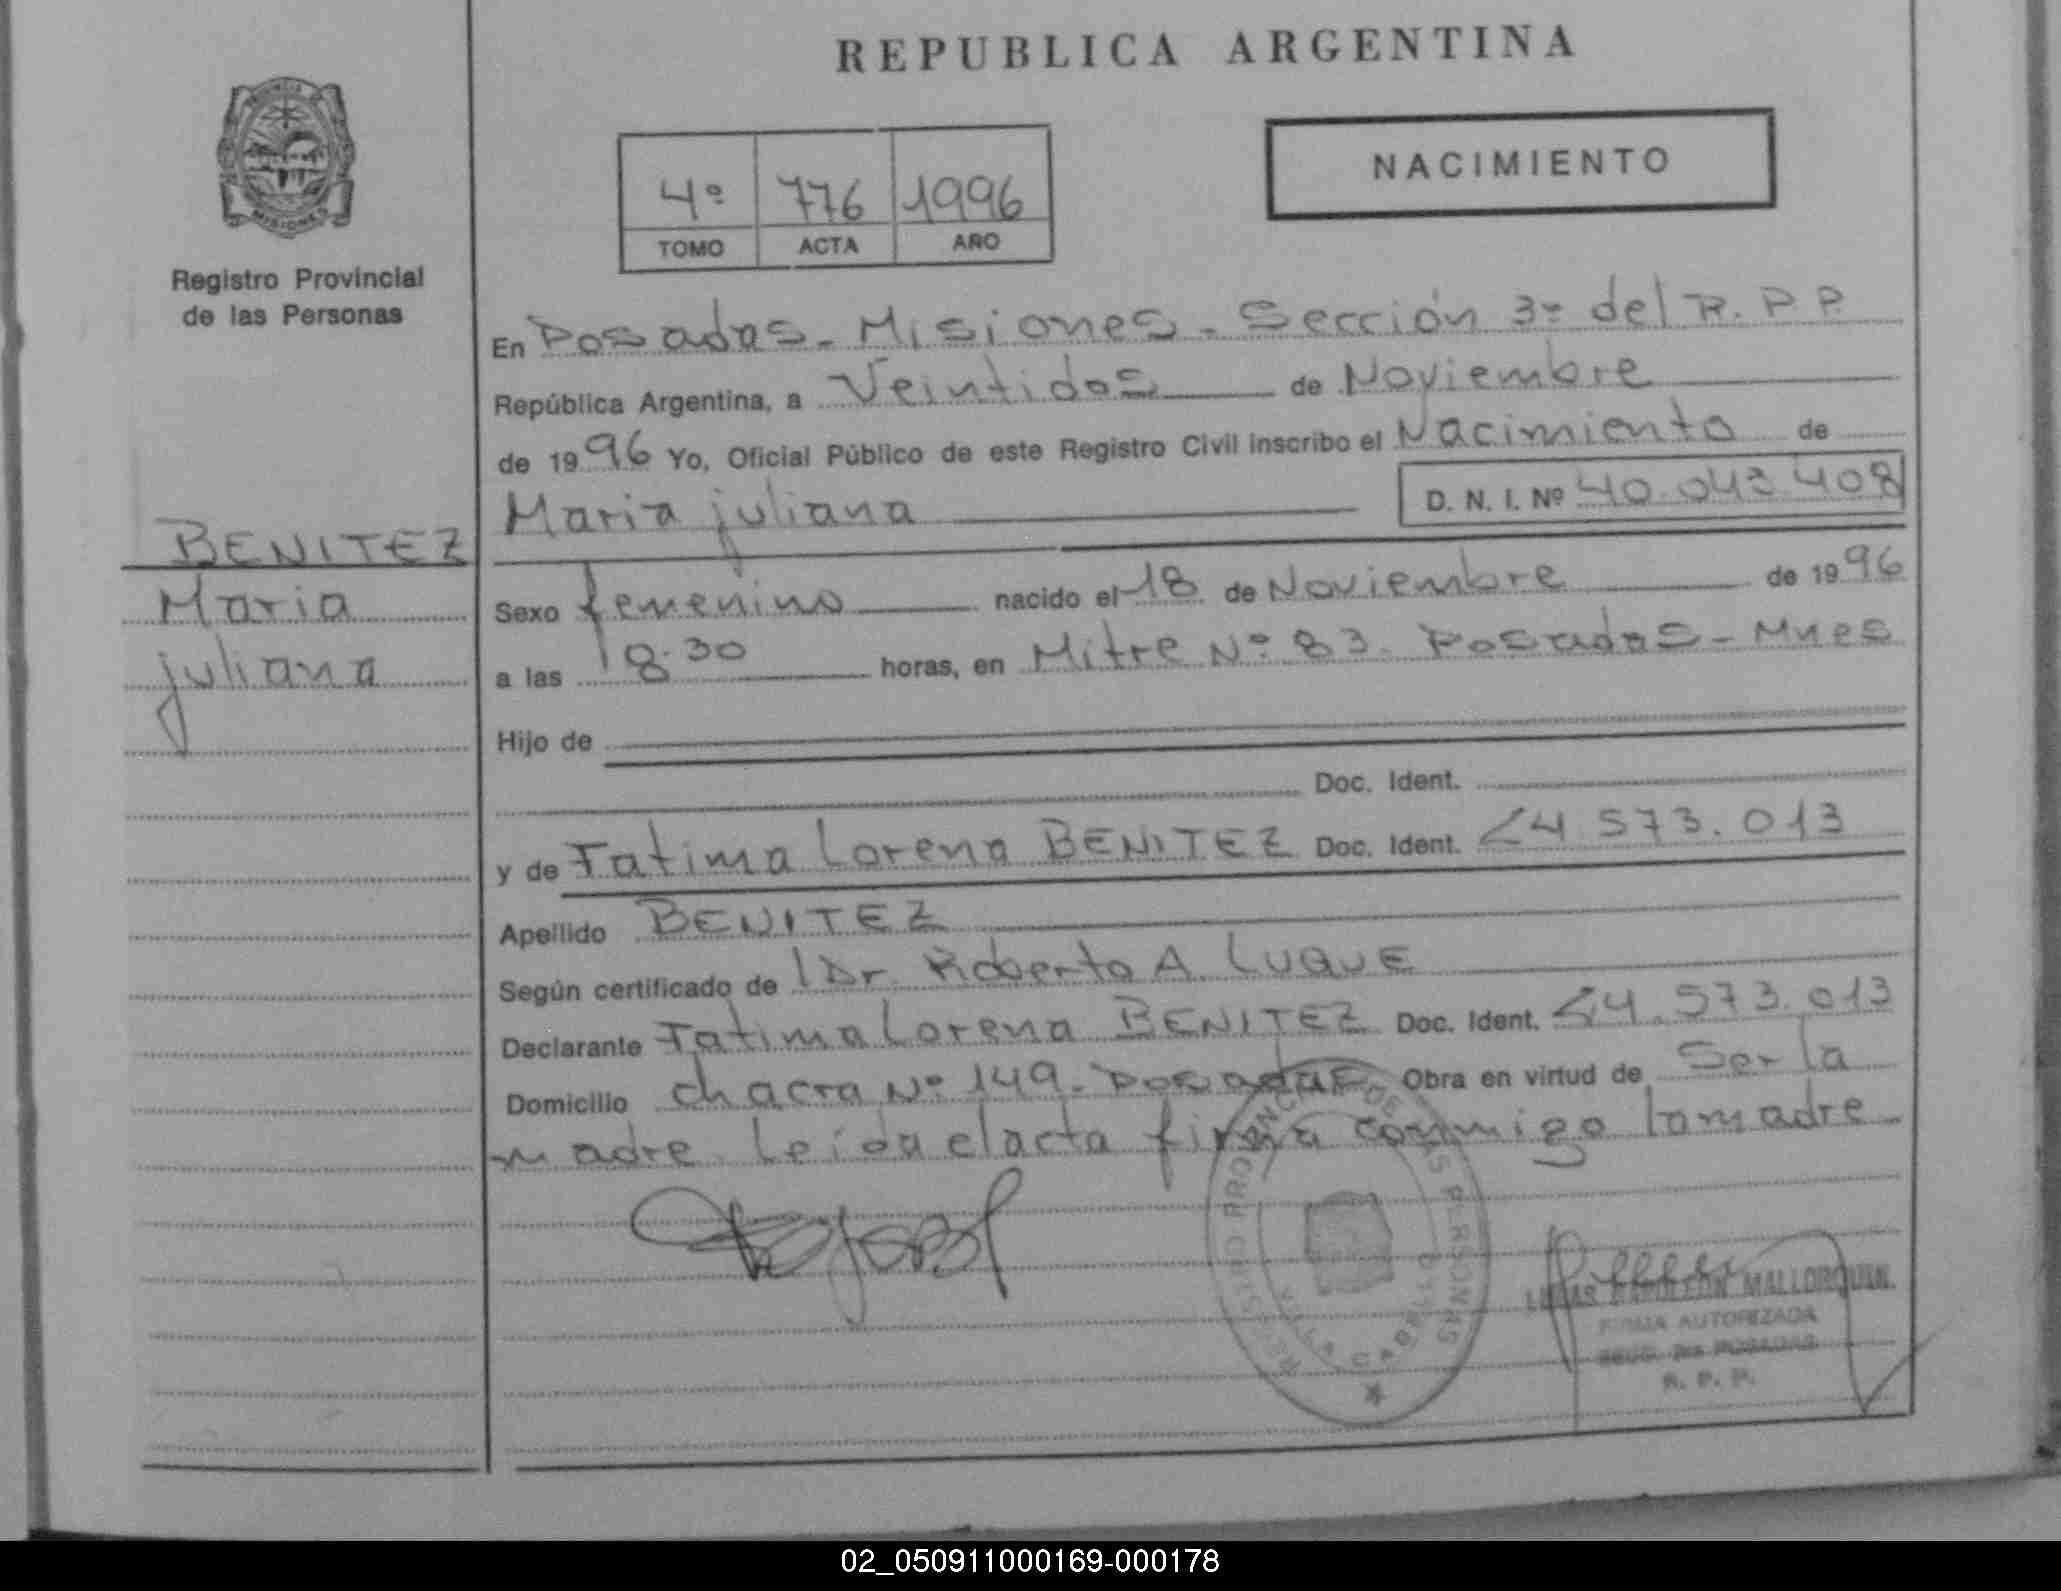 REPUBLICA ARGENTINA
PROVINCIA DE MISIONES
Registro Provincial
de las Personas
4º 776 1996
TOMO ACTA AÑO
NACIMIENTO
En Posadas - Misiones - Sección 3º del R. P. P.
República Argentina, a Veintidos de Noviembre
de 1996 Yo, Oficial Público de este Registro Civil inscribo el Nacimiento de
Maria juliana D. N. I. Nº 40.043.408
BENITEZ
Maria
juliana
Sexo femenino nacido el 18 de Noviembre de 1996
a las 18.30 horas, en Mitre Nº 83. Posadas - Mnes
Hijo de
Doc. Ident.
y de Fatima Lorena BENITEZ Doc. Ident. 24.573.013
Apellido BENITEZ
Según certificado de Dr. Roberto A. LUQUE
Declarante Fatima Lorena BENITEZ Doc. Ident. 24.573.013
Domicilio chacra Nº 149 - Posadas Obra en virtud de Ser la
madre. Leida el acta firma conmigo la madre
REGISTRO PROVINCIAL DE LAS PERSONAS
VILLA CABELLO
MALLORQUIN
FIRMA AUTORIZADA
SECC. 3ra POSADAS
R. P. P.
02_050911000169-000178